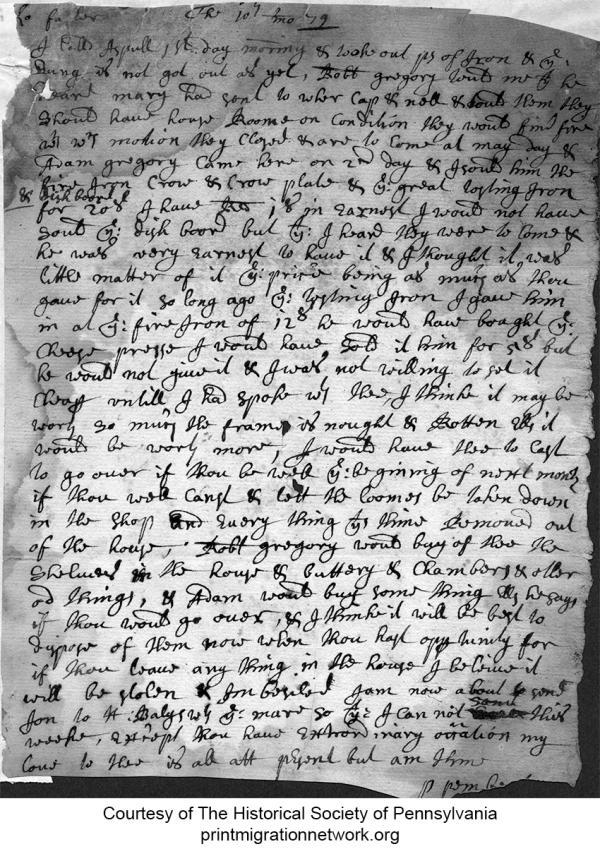 The 10th mo 79
I till Aprill 1st day morning & woke out ps of Iron & ye
dung is not got out as yet, Robt gregory tould me yt he
heard mary had sent to wher Cap & nell & tould them they
should have house Roome on Condition they would find fire
wch motion they Closed & are to Come at may day &
Adam gregory Came here on 2nd day & I sould him the
fire Iron Crow & Crow plate & ye great tosting Iron
& dish boord
for 20s I have 1s in Earnest I would not have
sould ye dish boord but ye I heard they were to Come &
he was very Earnest to have it & I thought it was
little matter of it ye price being as much as thou
gave for it so long ago ye tosting Iron I gave him
in at ye fire Iron of 12s he would have bought ye
Cheese presse I would have Sold it him for 5s but
he would not give it & I was not willing to sel it
Cheap untill I had spoke with thee, I thinke it may be
worth so much the frame is nought & Rotten Els it
would be worth more, I would have thee to Cast
to go over if thou be well ye begining of next month
if thou well Canst & lett the loomes be taken down
in the shop and Every thing yts thine Removed out
of the house, Robt gregory would buy of thee the
shelves in the house & buttery & Chambers & other
od things, & Adam would buy some thing Els he says
if thou would go over, & I thinke it will be best to
dispose of them now when thou hast opptunity for
if thou leave any thing in the house I beleive it
will be stolen & Imbesiled I am now about to send
Jon to H: with ye mare so yt I Can not send this
weeke, Except thou have Extrordinary occation my
love to thee is all att present but am thine
P pem
Courtesy of The Historical Society of Pennsylvania
printmigrationnetwork.org